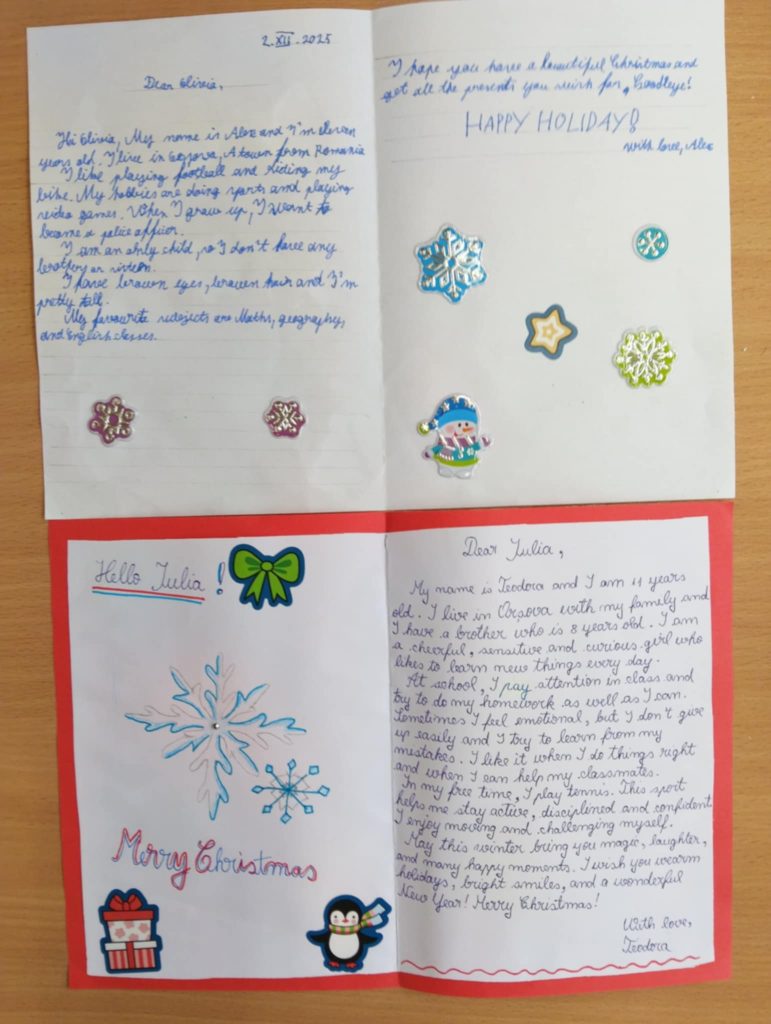 2.XII.2025
Dear Olivia,
Hi Olivia, My name is Alex and I'm eleven
years old. I live in Orșova, A town from Romania
I like playing football and riding my
bike. My hobbies are doing sports and playing
video games. When I grow up, I want to
become a police officer.
I am an only child, so I don't have any
brothers or sisters.
I have brown eyes, brown hair and I'm
pretty tall.
My favourite subjects are Maths, geography,
and English classes.
I hope you have a beautiful Christmas and
get all the presents you wish for, Goodbye!
HAPPY HOLIDAY!
With love, Alex
Hello Iulia!
Merry Christmas
Dear Iulia,
My name is Teodora and I am 11 years
old. I live in Orșova with my family and
I have a brother who is 8 years old. I am
a cheerful, sensitive and curious girl who
likes to learn new things every day.
At school, I pay attention in class and
try to do my homework as well as I can.
Sometimes I feel emotional, but I don't give
up easily and I try to learn from my
mistakes. I like it when I do things right
and when I can help my classmates.
In my free time, I play tennis. This sport
helps me stay active, disciplined and confident.
I enjoy moving and challenging myself.
May this winter bring you magic, laughter,
and many happy moments. I wish you warm
holidays, bright smiles, and a wonderful
New Year! Merry Christmas!
With love,
Teodora